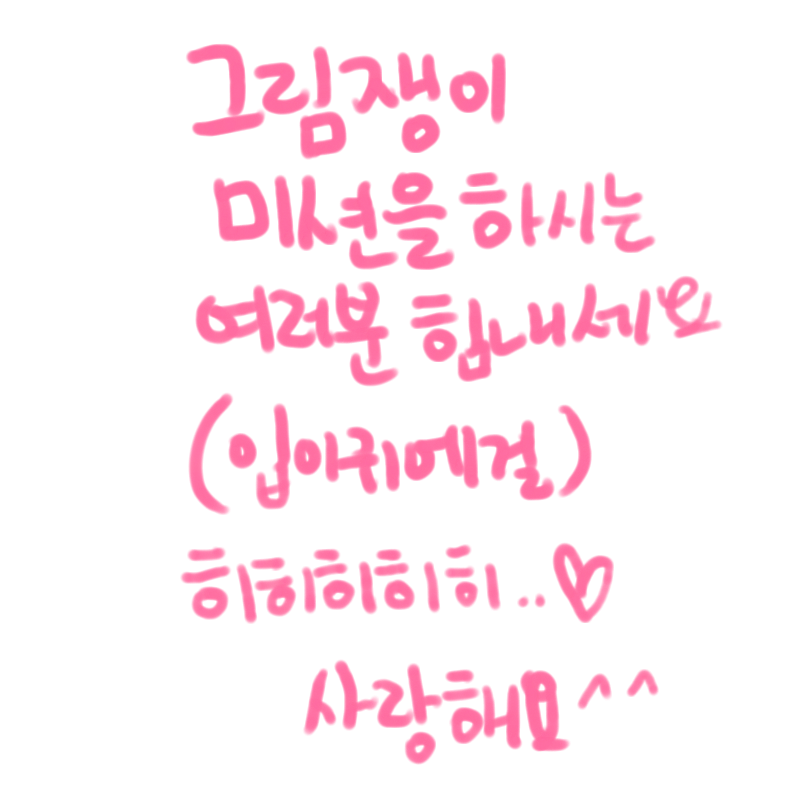 그림쟁이
미션을하시는
여러분 힘내세요
(입아귀에걸)
히히히히히..♡
사랑해요^^